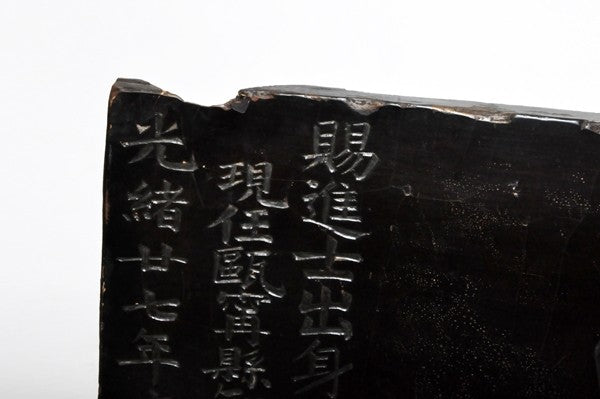 賜進士出身
現任甌寗縣
光緒廿七年